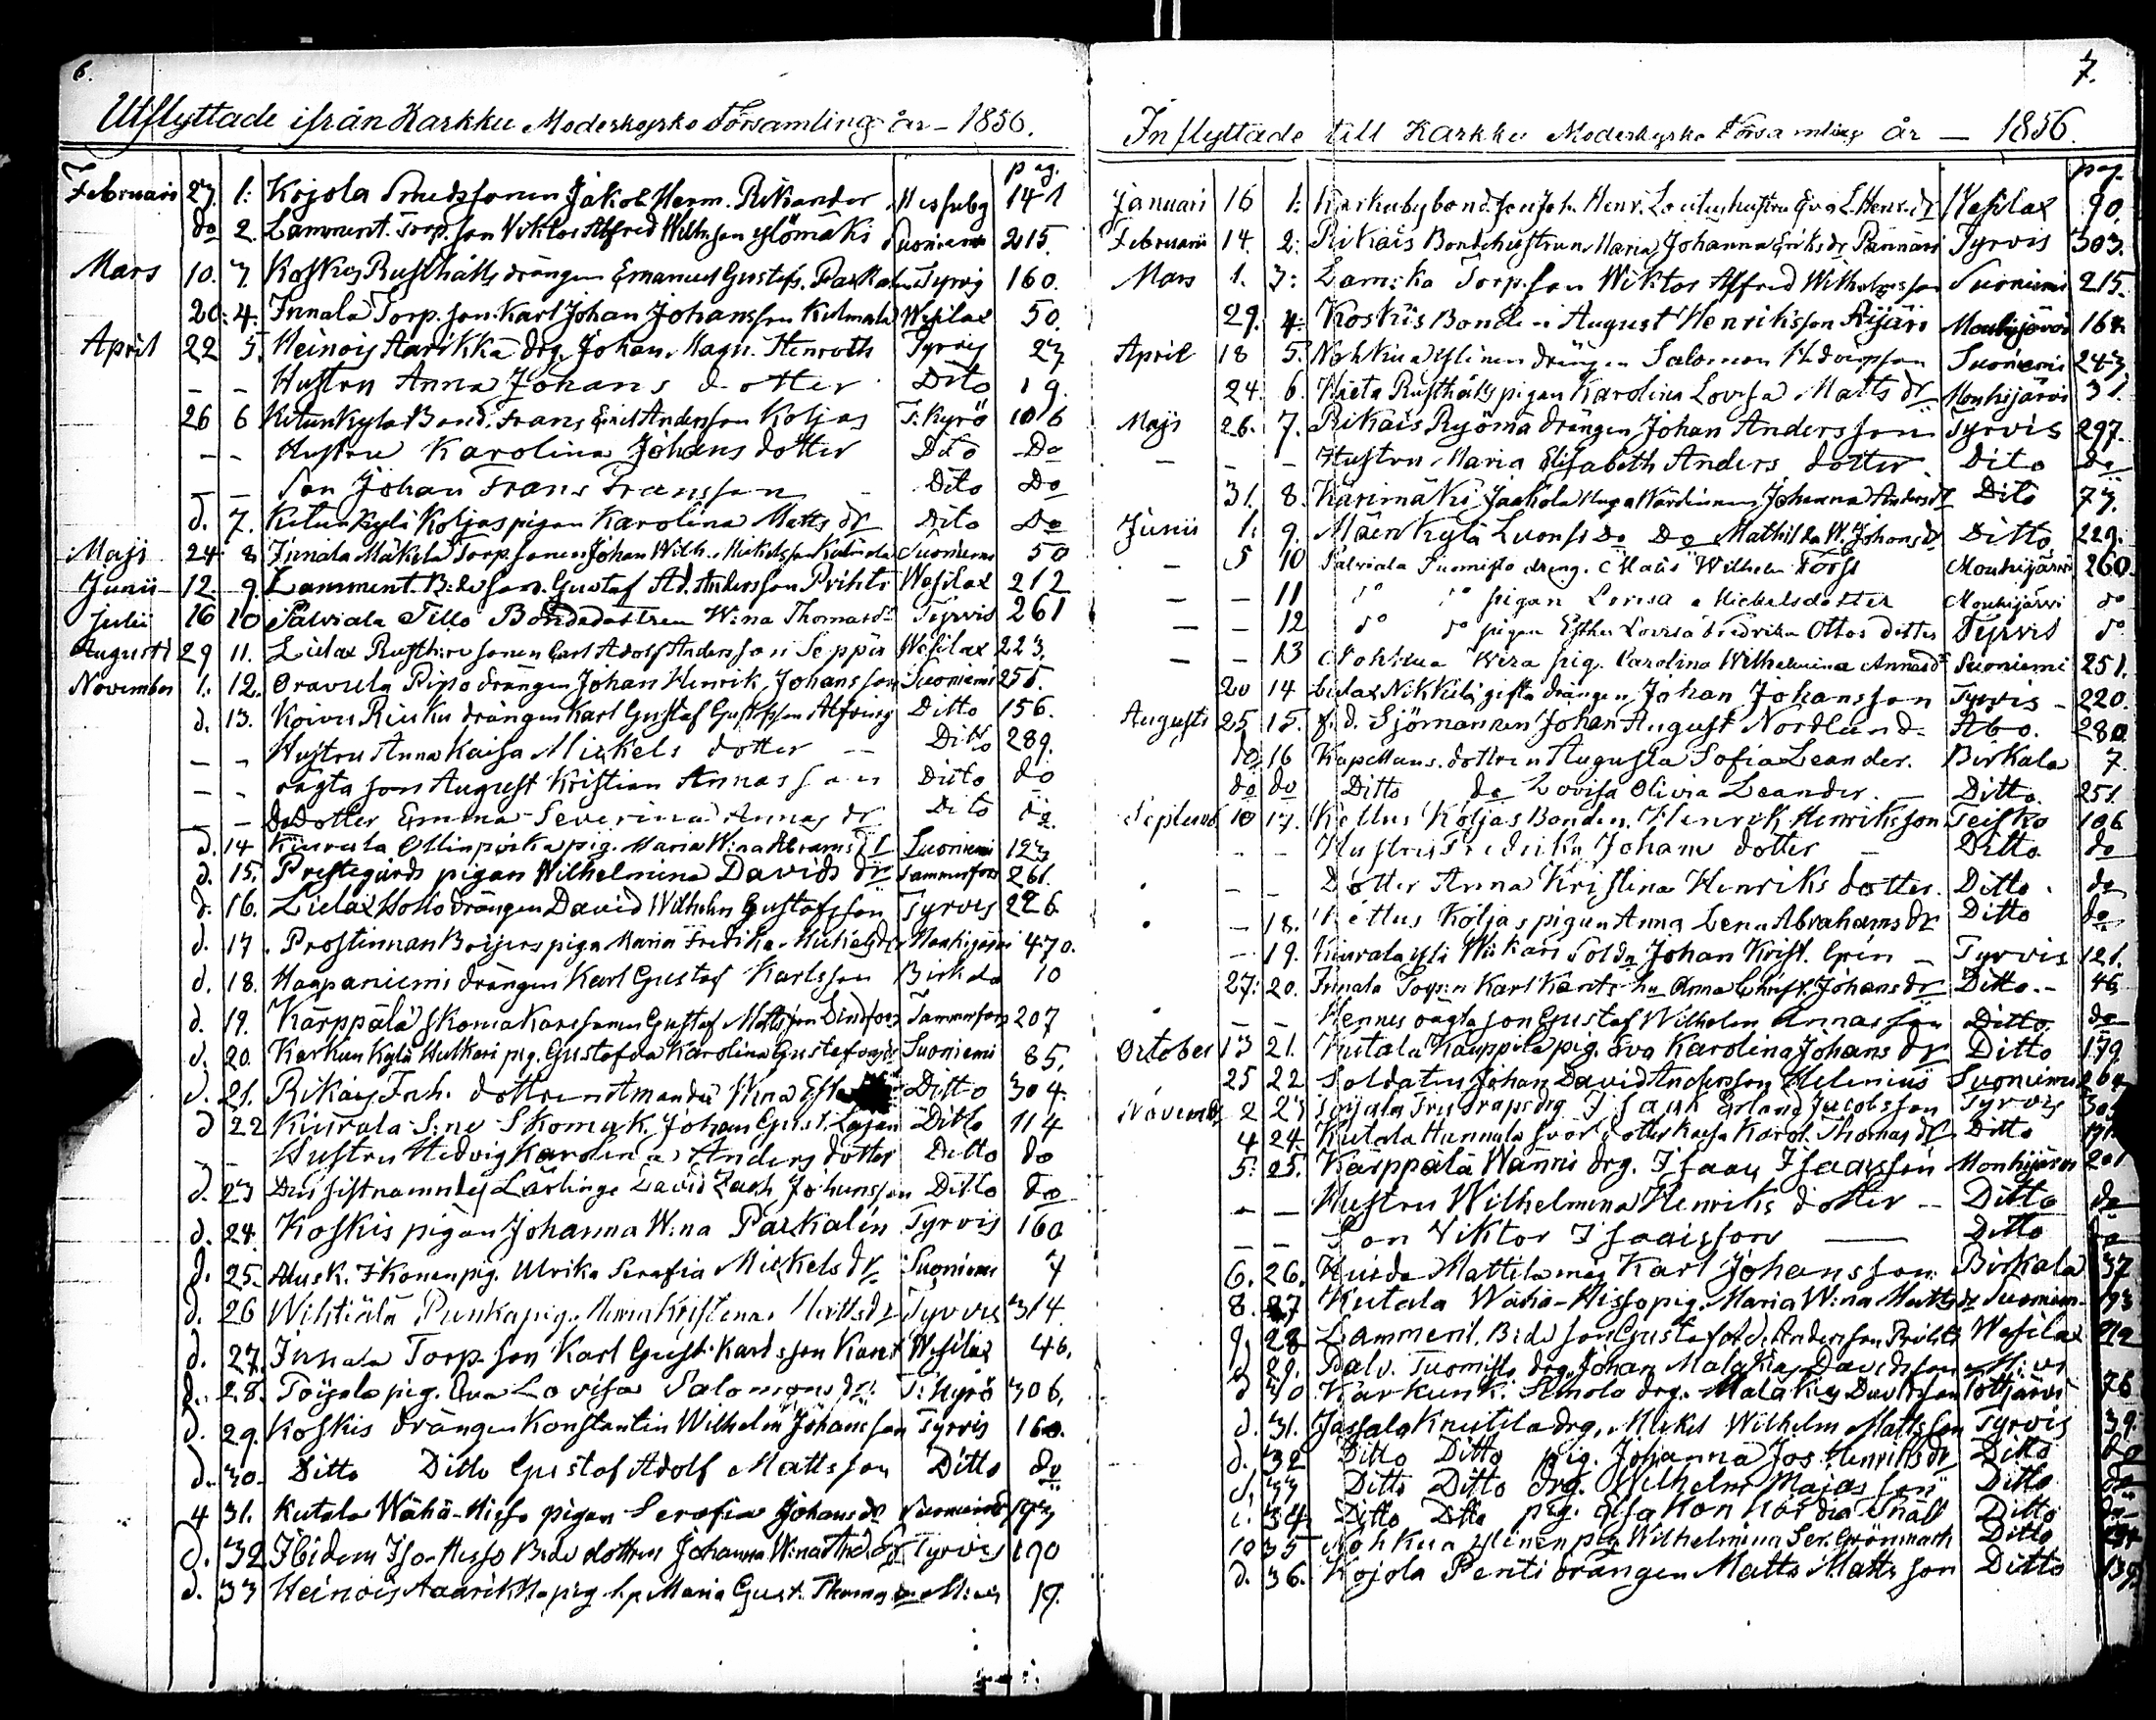 6.
Utflyttade ifrån Karkku Moderkyrko Församling år – 1856.
pag.
Februari 27. 1: Kojola Smedssonen Jakob Herm. Rikander 141
do 2. Lamment. Torp. son Viktor Alfred Wilh:son Ylömäki Suoniemi 215.
Mars 10. 3. Koskis Rusthålls drängen Emanuel Gustafs. Tyrvis 160.
20. 4. Innala Torp. son Karl Johan Johansson Kulmala Wesilax 50.
April 22 5. Heinois Aarikka drg. Johan Magn. Henroth Tyrvis 27
– – Hustru Anna Johans dotter Dito 19.
26 6 Kitunkylä Bond. Frans Emil Andersson Koljas T. Kyrö 106
– – Hustru Karolina Johans dotter Dito Do
– – Son Johan Frans Fransson Dito Do
d. 7. Kitunkylä Koljas pigan Karolina Matts dr Dito Do
Maji 24 8 Innala Mäkelä Torp. sonen Johan Wilh. Mickelsson Kulmala Suoniemi 50
Junii 12 9. Lamment. B:de son. Gustaf Ad. Andersson Prihti Wesilax 212
Julii 16 10 Salviala Tillo Bondedottren W:na Thomasdr Tyrvis 261
Augusti 29 11. Lielax Rusth:re sonen Carl Adolf Andersson Seppä Wesilax 223.
November 1. 12. Oravula Pipo drängen Johan Henrik Johansson Suoniemi 255.
d. 13. Koivu Riuku drängen Karl Gustaf Gustafsson Ditto 156.
– – Hustru Anna Kaisa Mickels dotter – Ditto 289.
– – oägta son August Kristian Annas son Ditto do
– – Do Dotter Emma Severina Annas dr Ditto do
d. 14 Kiurala Ollinpoika pig. Maria W:na Abrams dr Suoniemi 123
d. 15. Prestegårds pigan Wilhelmina Davids dr Tammerfors 261.
d. 16. Lielax Hoko drängen David Wilhelm Gustafsson Tyrvis 226
d. 17. Prostinnan Boijers piga Maria Fredika Michelsdr Mouhijärvi 470.
d. 18. Haapaniemi drängen Karl Gustaf Karlsson Birkala 10
d. 19. Kärppälä Skomakaresonen Gustaf Mattsson Lindfors Tammerfors 207
d. 20. Karkunkylä Hulkari pig. Gustafva Karolina Gustafsdr Suoniemi 85.
d. 21. Rikais Inh. dottren Amanda W:na Ditto 304.
d 22 Kiurala S:ne Skomak. Johan Gust. Ditto 114
– – Hustru Hedvig Karolina Anders dotter Ditto do
d. 23 Den sistnämndes Lärlinge David Zach. Johansson Ditto do
d. 24. Koskis pigan Johanna W:na Paxkalin Tyrvis 160
d. 25. Ikonen pig. Ulrika Serafia Mickels dr Suoniemi 7
d. 26 Wihtiälä Punka pig. Maria Kristina Matts dr Tyrvis 314.
d. 27. Innala Torp. son Karl Gust. Karlsson Kant Wesilax 46.
d. 28. Toijola pig. Eva Lovisa Salomons dr T. Kyrö 306.
d. 29. Koskis drängen Konstantin Wilhelm Johansson Tyrvis 160.
d. 30. Ditto Ditto Gustaf Adolf Mattsson Ditto do
4 31. Kutala Wähä-Hisso pigan Serafia Johans dr Suoniemi 193
d. 32 Ibidem Iso-Hisso B:de dottren Johanna W:na Tyrvis 190
d. 33 Heinois Aarikka pig. Maria Gust. Thomas dr 19.
7.
Inflyttade till Karkku Moderkyrko Församling år – 1856.
pag.
Januari 16 1: Karkuby bond. son Joh. Henr. hustru Eva L. Henr. dr Wesilax 90.
Februarii 14. 2: Rikais Bondehustrun Maria Johanna Eriks dr Pännäri Tyrvis 303.
Mars 1. 3: Torp. son Wiktor Alfred Wilhelmsson Suoniemi 215.
29. 4: Koskis Bonden August Henriksson Äijäri Mouhijärvi 164.
April 18 5. Nohkua Ylinen drängen Salomon Suoniemi 243.
24. 6. Rusthålls pigan Karolina Lovisa Matts dr Mouhijärvi 31.
Maji 26. 7. Rikais Ryömä drängen Johan Andersson Tyrvis 297.
– – – Hustru Maria Elisabeth Anders dotter. Dito Do
31. 8. Karimäki Jaakola Johanna Anders dr Dito 77.
Junii 1. 9. Mäenkylä Do Do Mathilda W. Johans dr Ditto 229.
– 5 10 Salviala Tuomisto dreng. Mats Wilhelm Fors Mouhijärvi 260.
– – 11 do do pigan Lovisa Michelsdotter Mouhijärvi do
– – 12 do do pigan Esther Lovisa Fredrika Ottos dotter Tyrvis do
– – 13 Nohkua Wera pig. Carolina Wilhelmina Annasdr Suoniemi 251.
20 14 Lielax Nikkilä gifta drängen Johan Johansson Tyrvis – 220.
Augusti 25 15. f. d. Sjömannen Johan August Nordlund. Åbo. 280.
do 16 Kapellans. dottren Augusta Sofia Leander. Birkala 7.
do do Ditto do Lovisa Olivia Leander. – Ditto. 251.
Septemb 10 17. Kellus Koljas Bonden. Henrik Henriksson Teisko 106
– – Hustru Fredrika Johans dotter – Ditto. do
– – Dotter Anna Kristina Henriks dotter. Ditto. do
– 18. Kellus Koljas pigan Anna Lena Abrahams dr Ditto do
– 19. Kiurala Yli Wikari Sold. Johan Krist. Grén – Tyrvis 121.
27: 20. Innala Torp:n Karl Kants hu Anna Christ. Johans dr Ditto. – 46
– – Hennes oägta son Gustaf Wilhelm Annasson Ditto. do
October 13 21. Kutala Kauppila pig. Eva Karolina Johans dr Ditto 179
25 22 Soldaten Johan David Andersson Helenius Suoniemi
Novemb 2 23 Toijala drg. Isaak Erland Jacobsson Tyrvis
4 24. Kutala Hannula svär dotter Kaisa Karol. Thomas dr Ditto
5. 25. Kärppälä Wänni drg. Isaac Isacsson Mouhijärvi 201
– – Hustru Wilhelmina Henriks dotter – Ditto do
– – Son Viktor Isaacsson – Ditto do
6. 26. Mattila måg Karl Johansson Birkala 37
8. 27 Kutala Wähä-Hisso pig. Maria W:na Matts dr Suoniemi 193
9. 28 Lamment. B:de son Gustaf Ad. Andersson Prihti Wesilax 212
d 29. Salv. Tuomisto drg. Johan Malakias Davidsson
d 30. Karkunk. Simola drg. Malakias Davidsson 76
d. 31. Jassala Knutila drg. Mickel Wilhelm Mattsson Tyrvis 39.
d. 32 Ditto Ditto pig. Johanna Jos. Henriks dr Ditto do
d. 33 Ditto Ditto drg. Wilhelm Majasson Ditto do
d. 34 Ditto Ditto pig. Elsa Konkordia Snäll Ditto do
10 35 Nohkua Ylinen pig. Wilhelmina Ser. Grönmark Ditto
d. 36. Kojola Pentti drängen Matts Mattsson Ditto 139